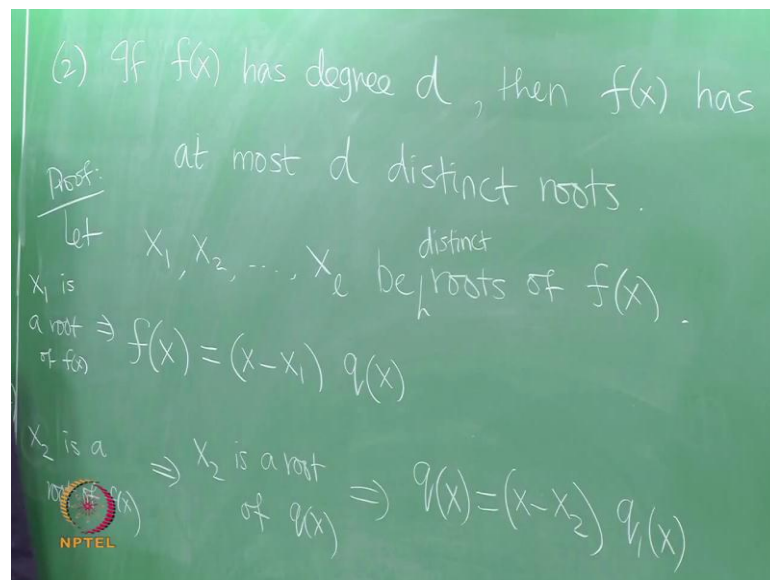 (2) If f(x) has degree d, then f(x) has
at most d distinct roots.
Proof:
Let x₁, x₂, ..., xₗ be distinct roots of f(x).
x₁ is
a root
of f(x)
⇒ f(x) = (x-x₁) q(x)
x₂ is a
root of f(x)
⇒ x₂ is a root
of q(x)
⇒ q(x) = (x-x₂) q₁(x)
NPTEL